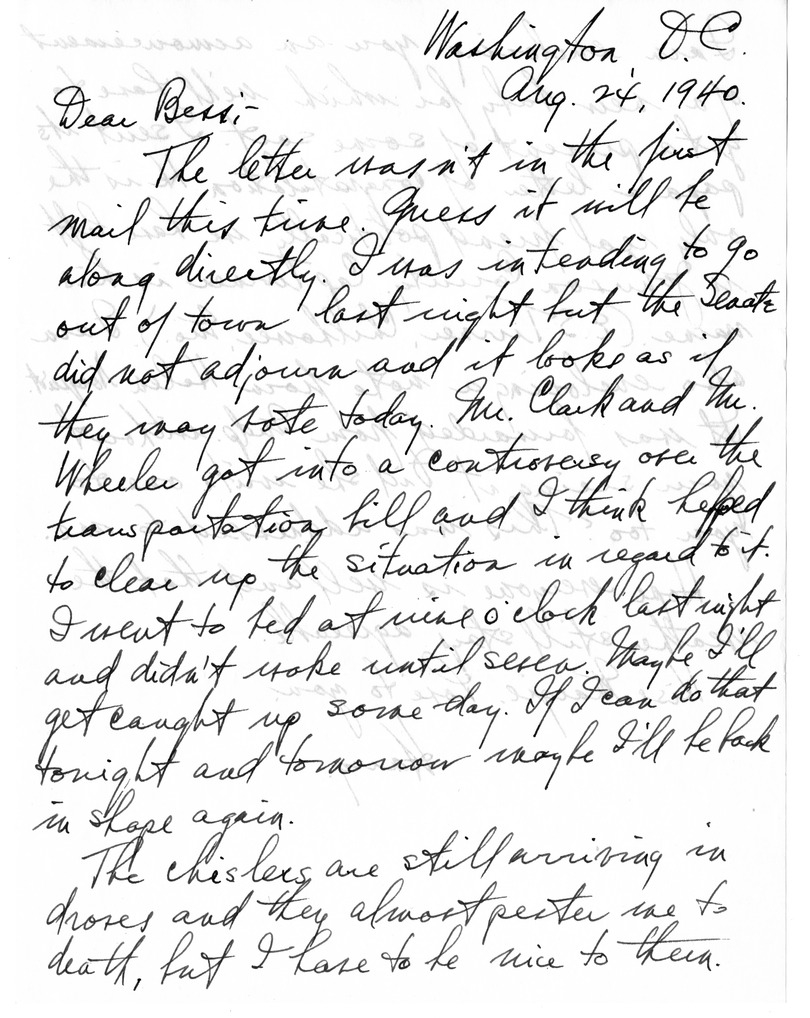 Washington, D.C.
Aug. 24, 1940.
Dear Bess:-
The letter wasn't in the first
mail this time. Guess it will be
along directly. I was intending to go
out of town last night but the Senate
did not adjourn and it looks as if
they may vote today. Mr. Clark and Mr.
Wheeler got into a controversy over the
transportation bill and I think helped
to clear up the situation in regard to it.
I went to bed at nine o'clock last night
and didn't wake until seven. Maybe I'll
get caught up some day. If I can do that
tonight and tomorrow maybe I'll be back
in shape again.
The chislers are still arriving in
droves and they almost pester me to
death, but I have to be nice to them.